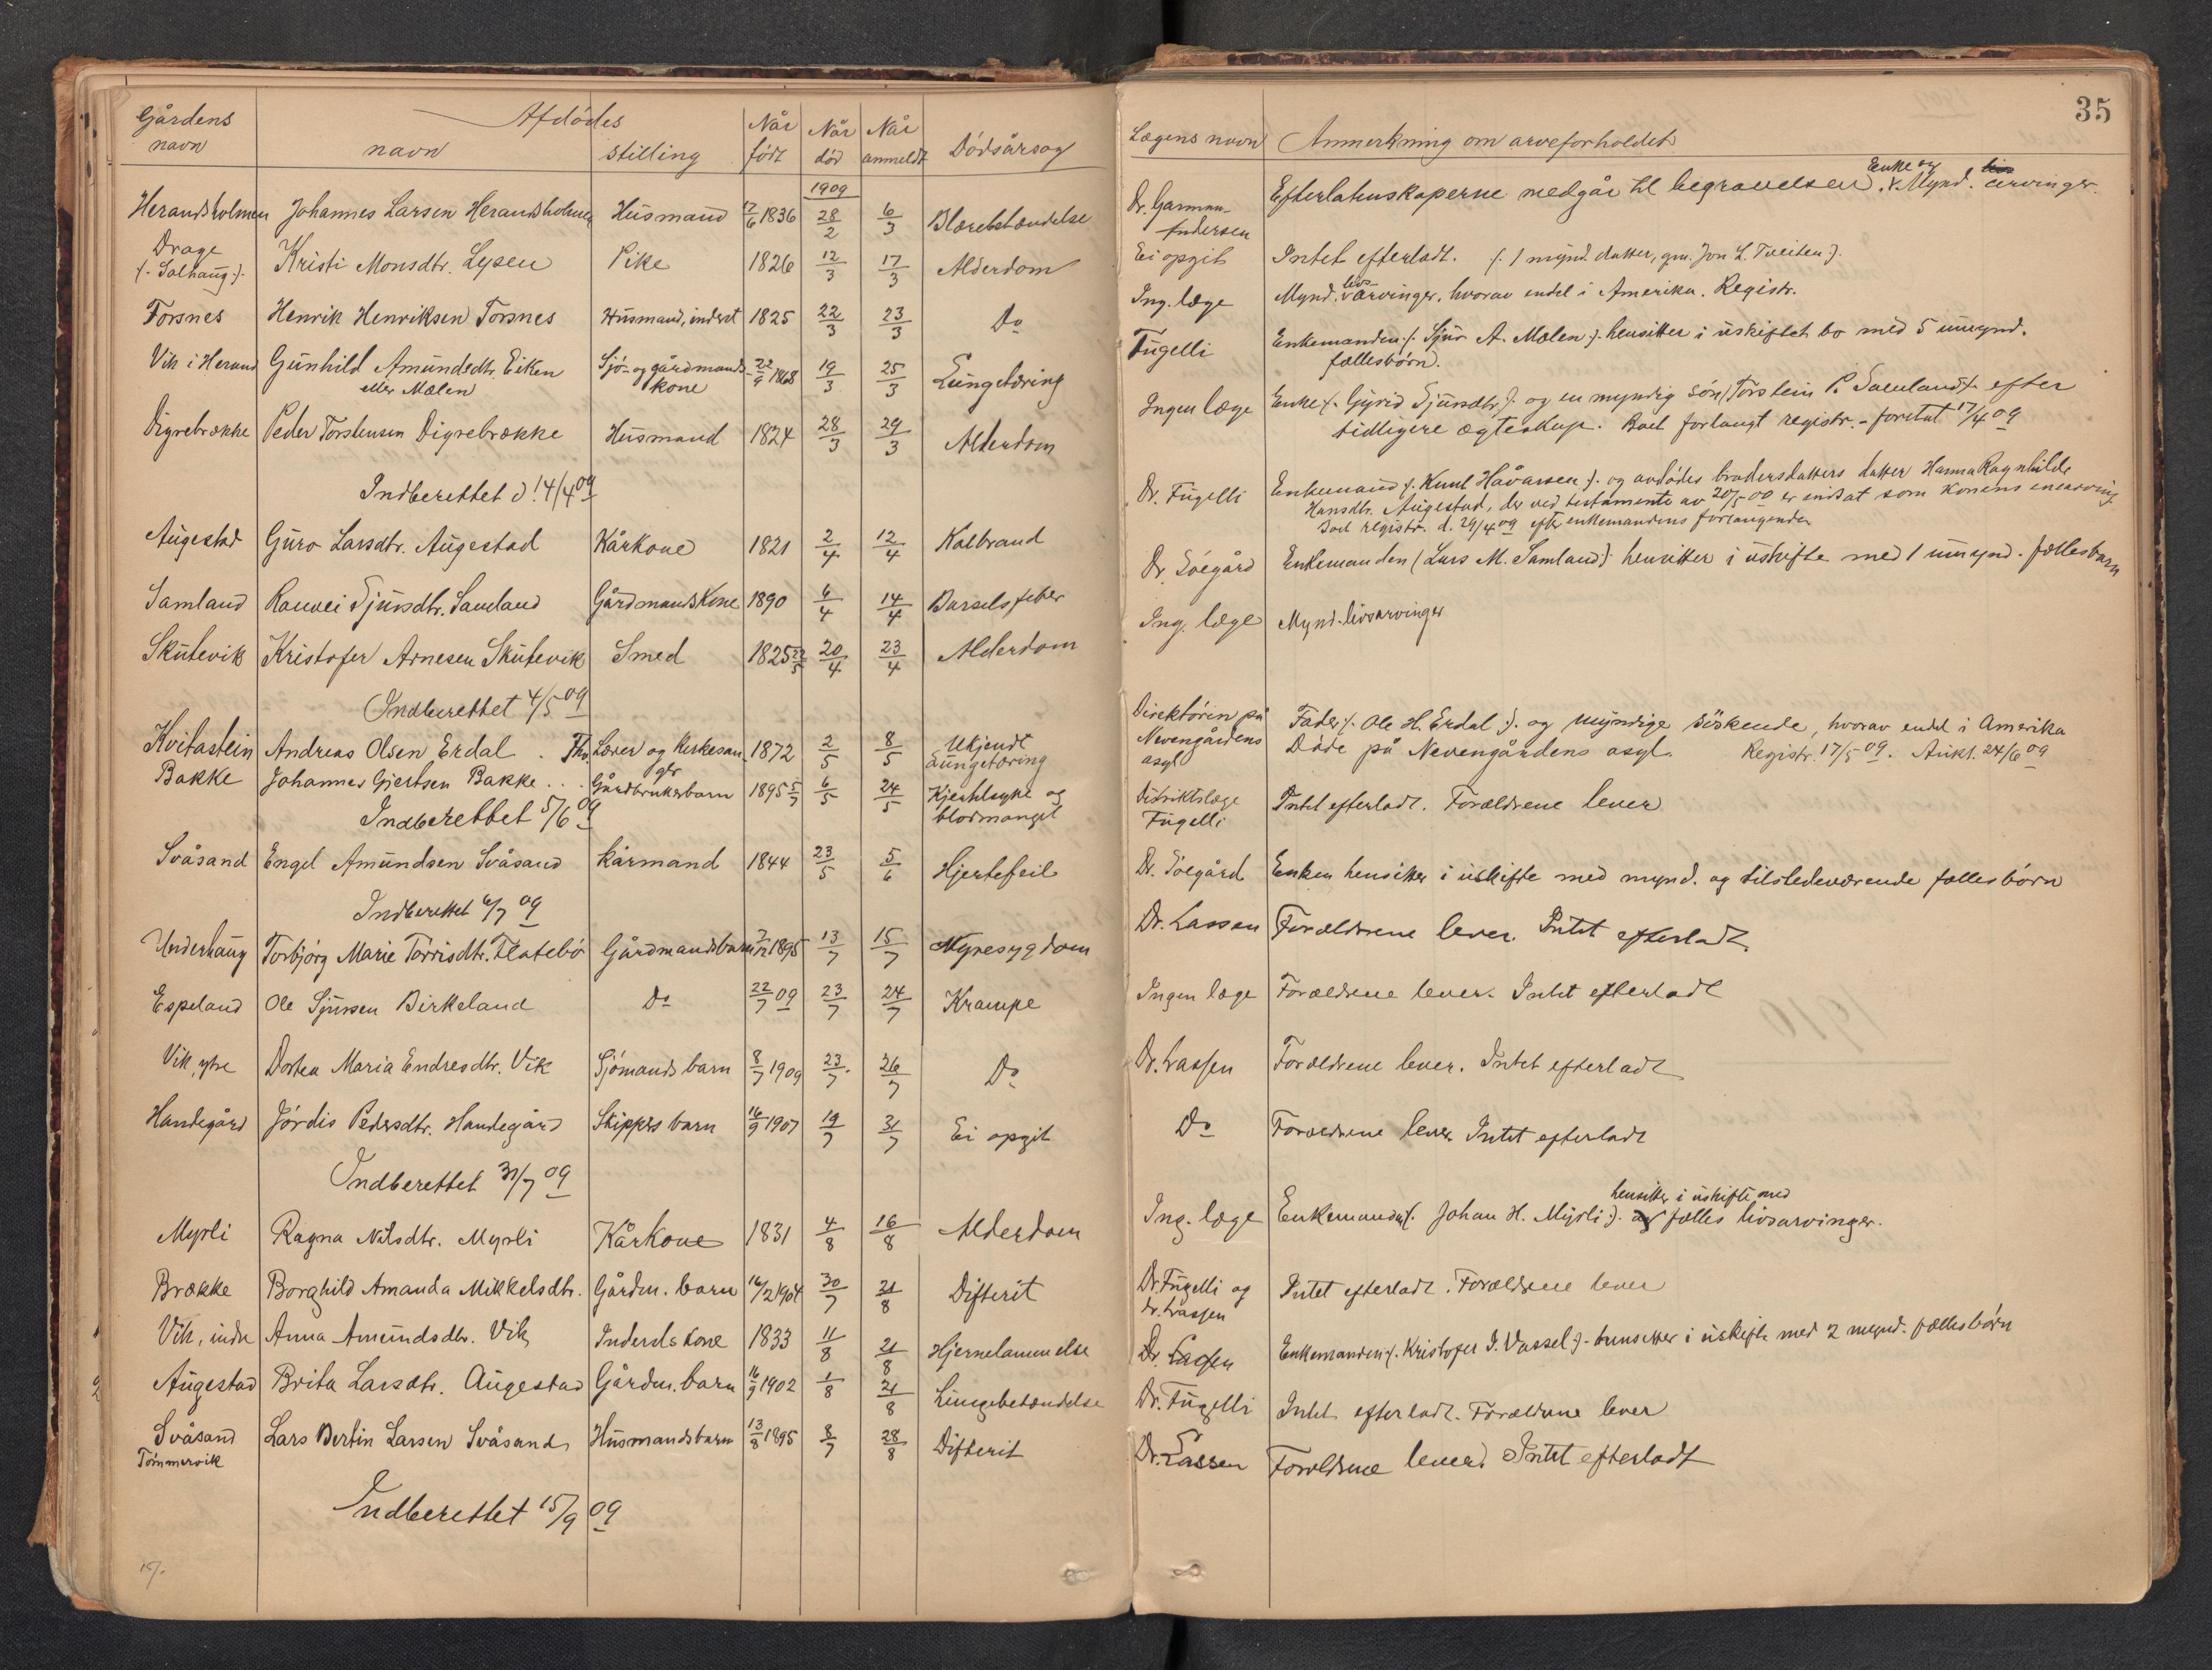 35
Gårdens navn | Afdødes navn | stilling | Når født | Når død | Når anmeldt | Dødsårsag | Lægens navn | Anmerkning om arveforholdet
1909
Herandsholmen | Johannes Larsen Herandsholmen | Husmand | 17/6 1836 | 28/2 | 6/3 | Blærebetændelse | Dr. Garman-Andersen | Efterlatenskaperne medgår til begravelsen. Enke og Mynd. arvinger.
Drage (: Solhaug :) | Kristi Monsdtr. Lysen | Pike | 1826 | 12/3 | 17/3 | Alderdom | Ei opgit | Intet efterladt. (: 1 mynd. datter, gm. Jon L. Tveiten :)
Torsnes | Henrik Henriksen Torsnes | Husmand, inderst | 1825 | 22/3 | 23/3 | Do | Ing. læge | Mynd. livsarvinger, hvorav endel i Amerika. Registr.
Vik i Herand | Gunhild Amundsdtr. Eiken eller Mælen | Sjø- og gårdmands-kone | 22/9 1868 | 19/3 | 25/3 | Lungetæring | Fugelli | Enkemanden (: Sjur A. Mælen :) hensitter i uskiftet bo med 5 umynd.
fællesbørn.
Digrebrække | Peder Torstensen Digrebrække | Husmand | 1824 | 28/3 | 29/3 | Alderdom | Ingen læge | Enke (: Gyrid Sjursdtr. :) og en myndig søn (Torstein P. Samland) efter
tidligere ægteskap. Boet forlangt registr. - foretat 17/4 09
Indberettet d. 14/4 09
Augestad | Guro Larsdtr. Augestad | Kårkone | 1821 | 2/4 | 12/4 | Kolbrand | Dr. Fugelli | Enkemand (: Knut Håvarsen :) og avdødes brodersdatters datter Hanna Ragnhilde
Hansdtr. Augestad, der ved testamente av 20/5 00 er indsat som konens enearving
Boet registr. d. 29/4 09 efter enkemandens forlangende
Samland | Ranvei Sjursdtr. Samland | Gårdmandskone | 1890 | 6/4 | 14/4 | Barselsfeber | Dr. Soegård | Enkemanden (Lars M. Samland) hensitter i uskifte med 1 umynd. fællesbarn
Skutevik | Kristofer Arnesen Skutevik | Smed | 1825 22/5 | 20/4 | 23/4 | Alderdom | Ing. læge | Mynd. livsarvinger
Indberettet 4/5 09
Kvitastein | Andreas Olsen Erdal | Fhv. Lærer og kirkesanger | 1872 | 2/5 | 8/5 | Ukjendt Lungetæring | Direktøren på Nevengårdens asyl | Fader (: Ole H. Erdal :) og myndige søskende, hvorav endel i Amerika
Døde på Nevengårdens asyl. Registr. 17/5 09. Aukt. 24/6 09
Bakke | Johannes Gjertsen Bakke | Gårdbrukerbarn | 1895 5/7 | 6/5 | 24/5 | Kjertelsyke og blodmangel | Distriktslæge Fugelli | Intet efterladt. Forældrene lever
Indberettet 5/6 09
Svåsand | Engel Amundsen Svåsand | kårmand | 1844 | 23/5 | 5/6 | Hjertefeil | Dr. Soegård | Enken hensitter i uskifte med mynd. og tilstedeværende fællesbørn
Indberettet 6/7 09
Underhaug | Torbjørg Marie Torrisdtr. Flatebø | Gårdmandsbarn | 7/12 1895 | 13/7 | 15/7 | Nyresygdom | Dr. Lassen | Forældrene lever. Intet efterladt.
Espeland | Ole Sjursen Birkeland | Do | 22/7 09 | 23/7 | 24/7 | Krampe | Ingen læge | Forældrene lever. Intet efterladt
Vik, ytre | Dortea Maria Endresdtr. Vik | Sjømands barn | 8/7 1909 | 23/7 | 26/7 | Do | Dr. Lassen | Forældrene lever. Intet efterladt
Handegård | Jørdis Pedersdtr. Handegård | Skippers barn | 16/9 1907 | 19/7 | 31/7 | Ei opgit | Do | Forældrene lever. Intet efterladt
Indberettet 31/7 09
Myrli | Ragna Nilsdtr. Myrli | Kårkone | 1831 | 4/8 | 16/8 | Alderdom | Ing. læge | Enkemanden (: Johan H. Myrli :) hensitter i uskifte med fælles livsarvinger.
Brække | Borghild Amanda Mikkelsdtr. | Gårdm. barn | 16/2 1904 | 30/7 | 21/8 | Difterit | Dr. Fugelli og dr. Lassen | Intet efterladt. Forældrene lever
Vik, indre | Anna Amundsdtr. Vik | Inderstskone | 1833 | 11/8 | 21/8 | Hjernelammelse | Dr. Lassen | Enkemanden (: Kristofer I. Vassel :) hensitter i uskifte med 2 mynd. fællesbørn
Augestad | Brita Larsdtr. Augestad | Gårdm. barn | 16/9 1902 | 1/8 | 21/8 | Lungebetændelse | Dr. Fugelli | Intet efterladt. Forældrene lever
Svåsand Tømmervik | Lars Bertin Larsen Svåsand | Husmandsbarn | 13/8 1895 | 8/7 | 28/8 | Difterit | Dr. Lassen | Forældrene lever. Intet efterladt
Indberettet 15/9 09